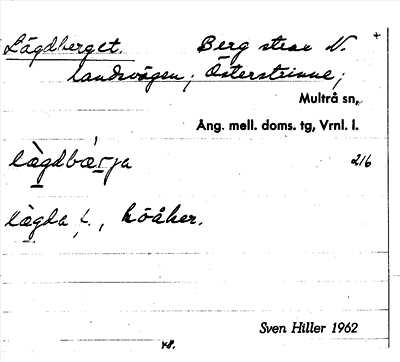 Lägdberget. Berg strax N. +
landsvägen, Österstrinne;
Multrå sn,
Ång. mell. doms. tg, Vrnl. l.
lägdbærja 216
lägda f., höåker.
Sven Hiller 1962
48.